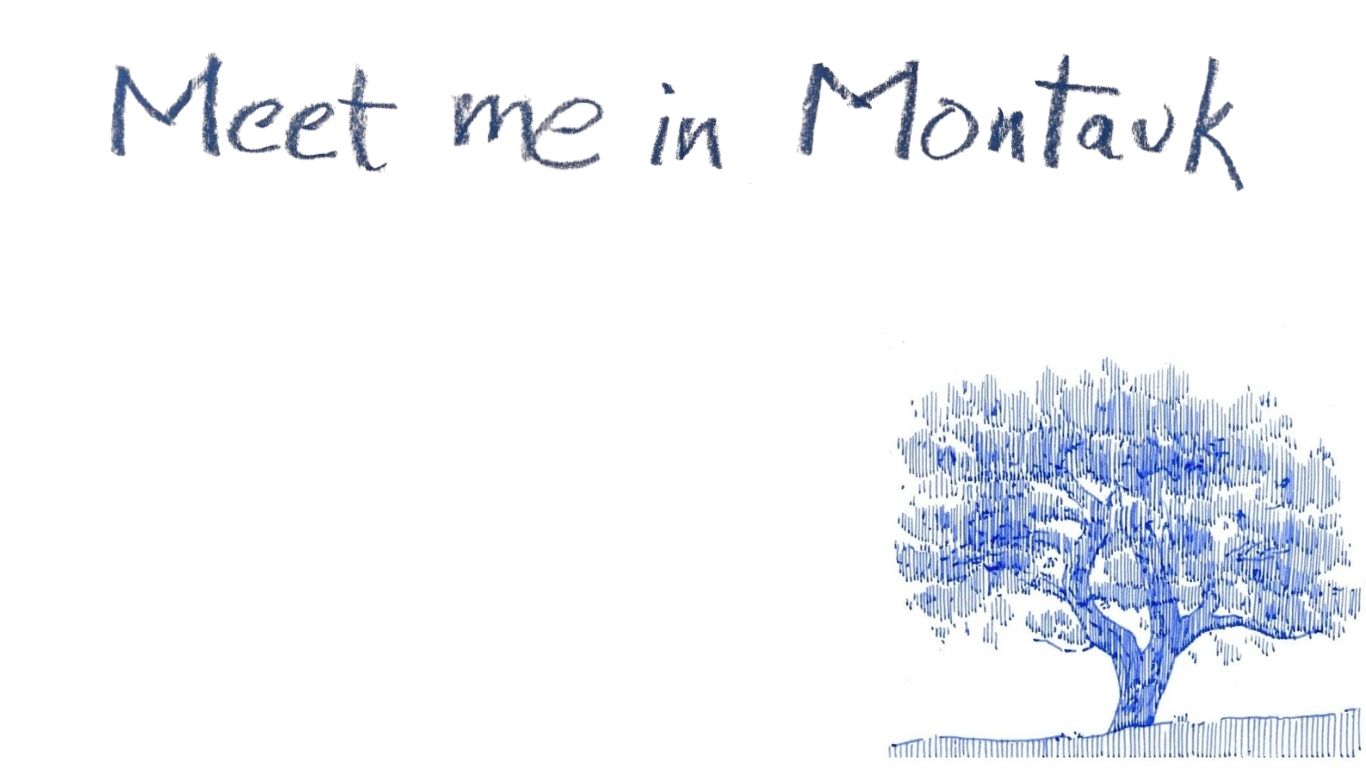 Meet me in Montauk